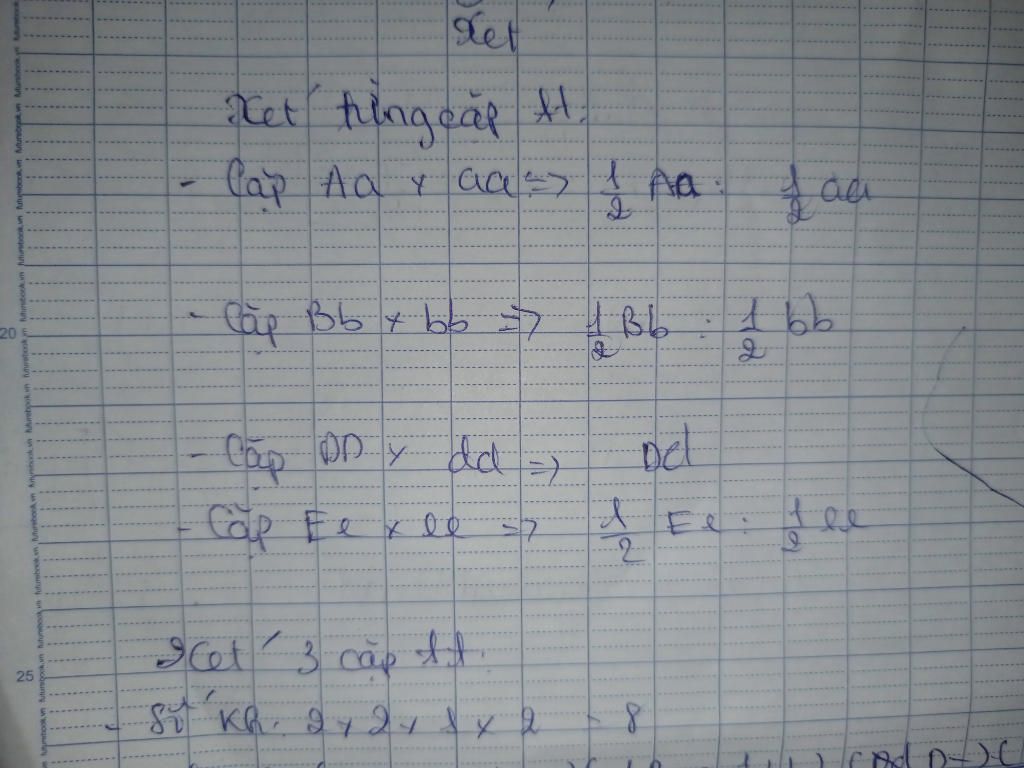 Xét
Xét từng cặp tt.
- Cặp Aa x aa => 1/2 Aa : 1/2 aa
- Cặp Bb x bb => 1/2 Bb : 1/2 bb
20
- Cặp DD x dd => Dd
- Cặp Ee x ee => 1/2 Ee : 1/2 ee
Xét 3 cặp tt.
25
- Số KH: 2 x 2 x 1 x 2 = 8
futurebook.vn